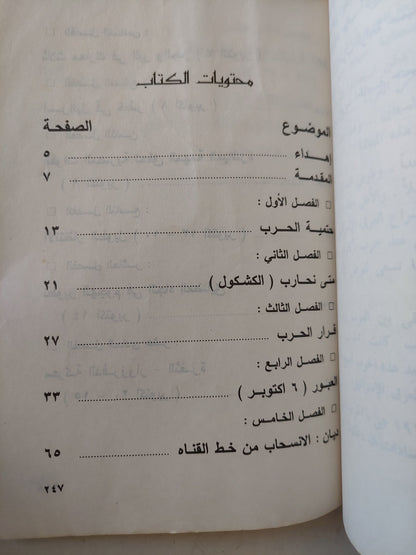 محتويات الكتاب
الموضوع الصفحة
إهداء ٥
المقدمة ٧
□ الفصل الأول :
حتمية الحرب ١٣
□ الفصل الثاني :
متى نحارب ( الكشكول ) ٢١
□ الفصل الثالث :
قرار الحرب ٢٧
□ الفصل الرابع :
العبور ( ٦ اكتوبر ) ٣٣
□ الفصل الخامس :
ديان : الانسحاب من خط القناه ٦٥
٢٤٧